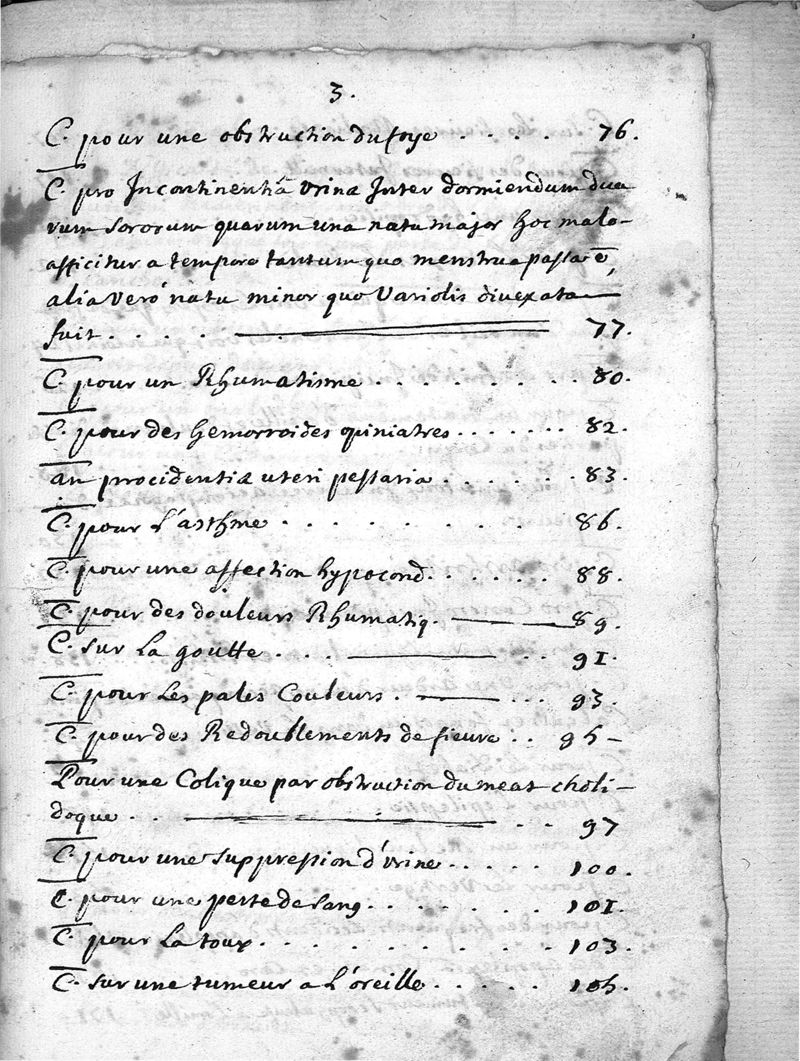 3.
C. pour une obstruction du foye . . . . 76.
C. pro Incontinentiâ vrinæ Inter dormiendum dua
rum sororum quarum una natu major hoc malo-
afficitur a tempore tantum quo menstrua passa ē,
alia vero natu minor quo Variolis divexata
fuit . . . . 77.
C. pour un Rhumatisme . . . . . . . 80.
C. pour des hemorroides opiniatres . . . . . . . 82.
an procidentiæ uteri pessaria . . . . . . 83.
C. pour L'asthme . . . . . . . 86.
C. pour une affection hypocond. . . . . . 88.
C. pour des douleurs Rhumatiq. 89.
C. sur La goutte . . . . . 91.
C. pour Les pales Couleurs . . . . 93.
C. pour des Redoublements de fieure . . 95-
Pour une Colique par obstruction du meat choli-
doque . . . . . 97
C. pour une suppression d'vrine . . . . . 100.
C. pour une perte de sang . . . . . . 101.
C. pour La toux . . . . . . . . 103.
C. sur une tumeur a L'oreille . . . . . 105.